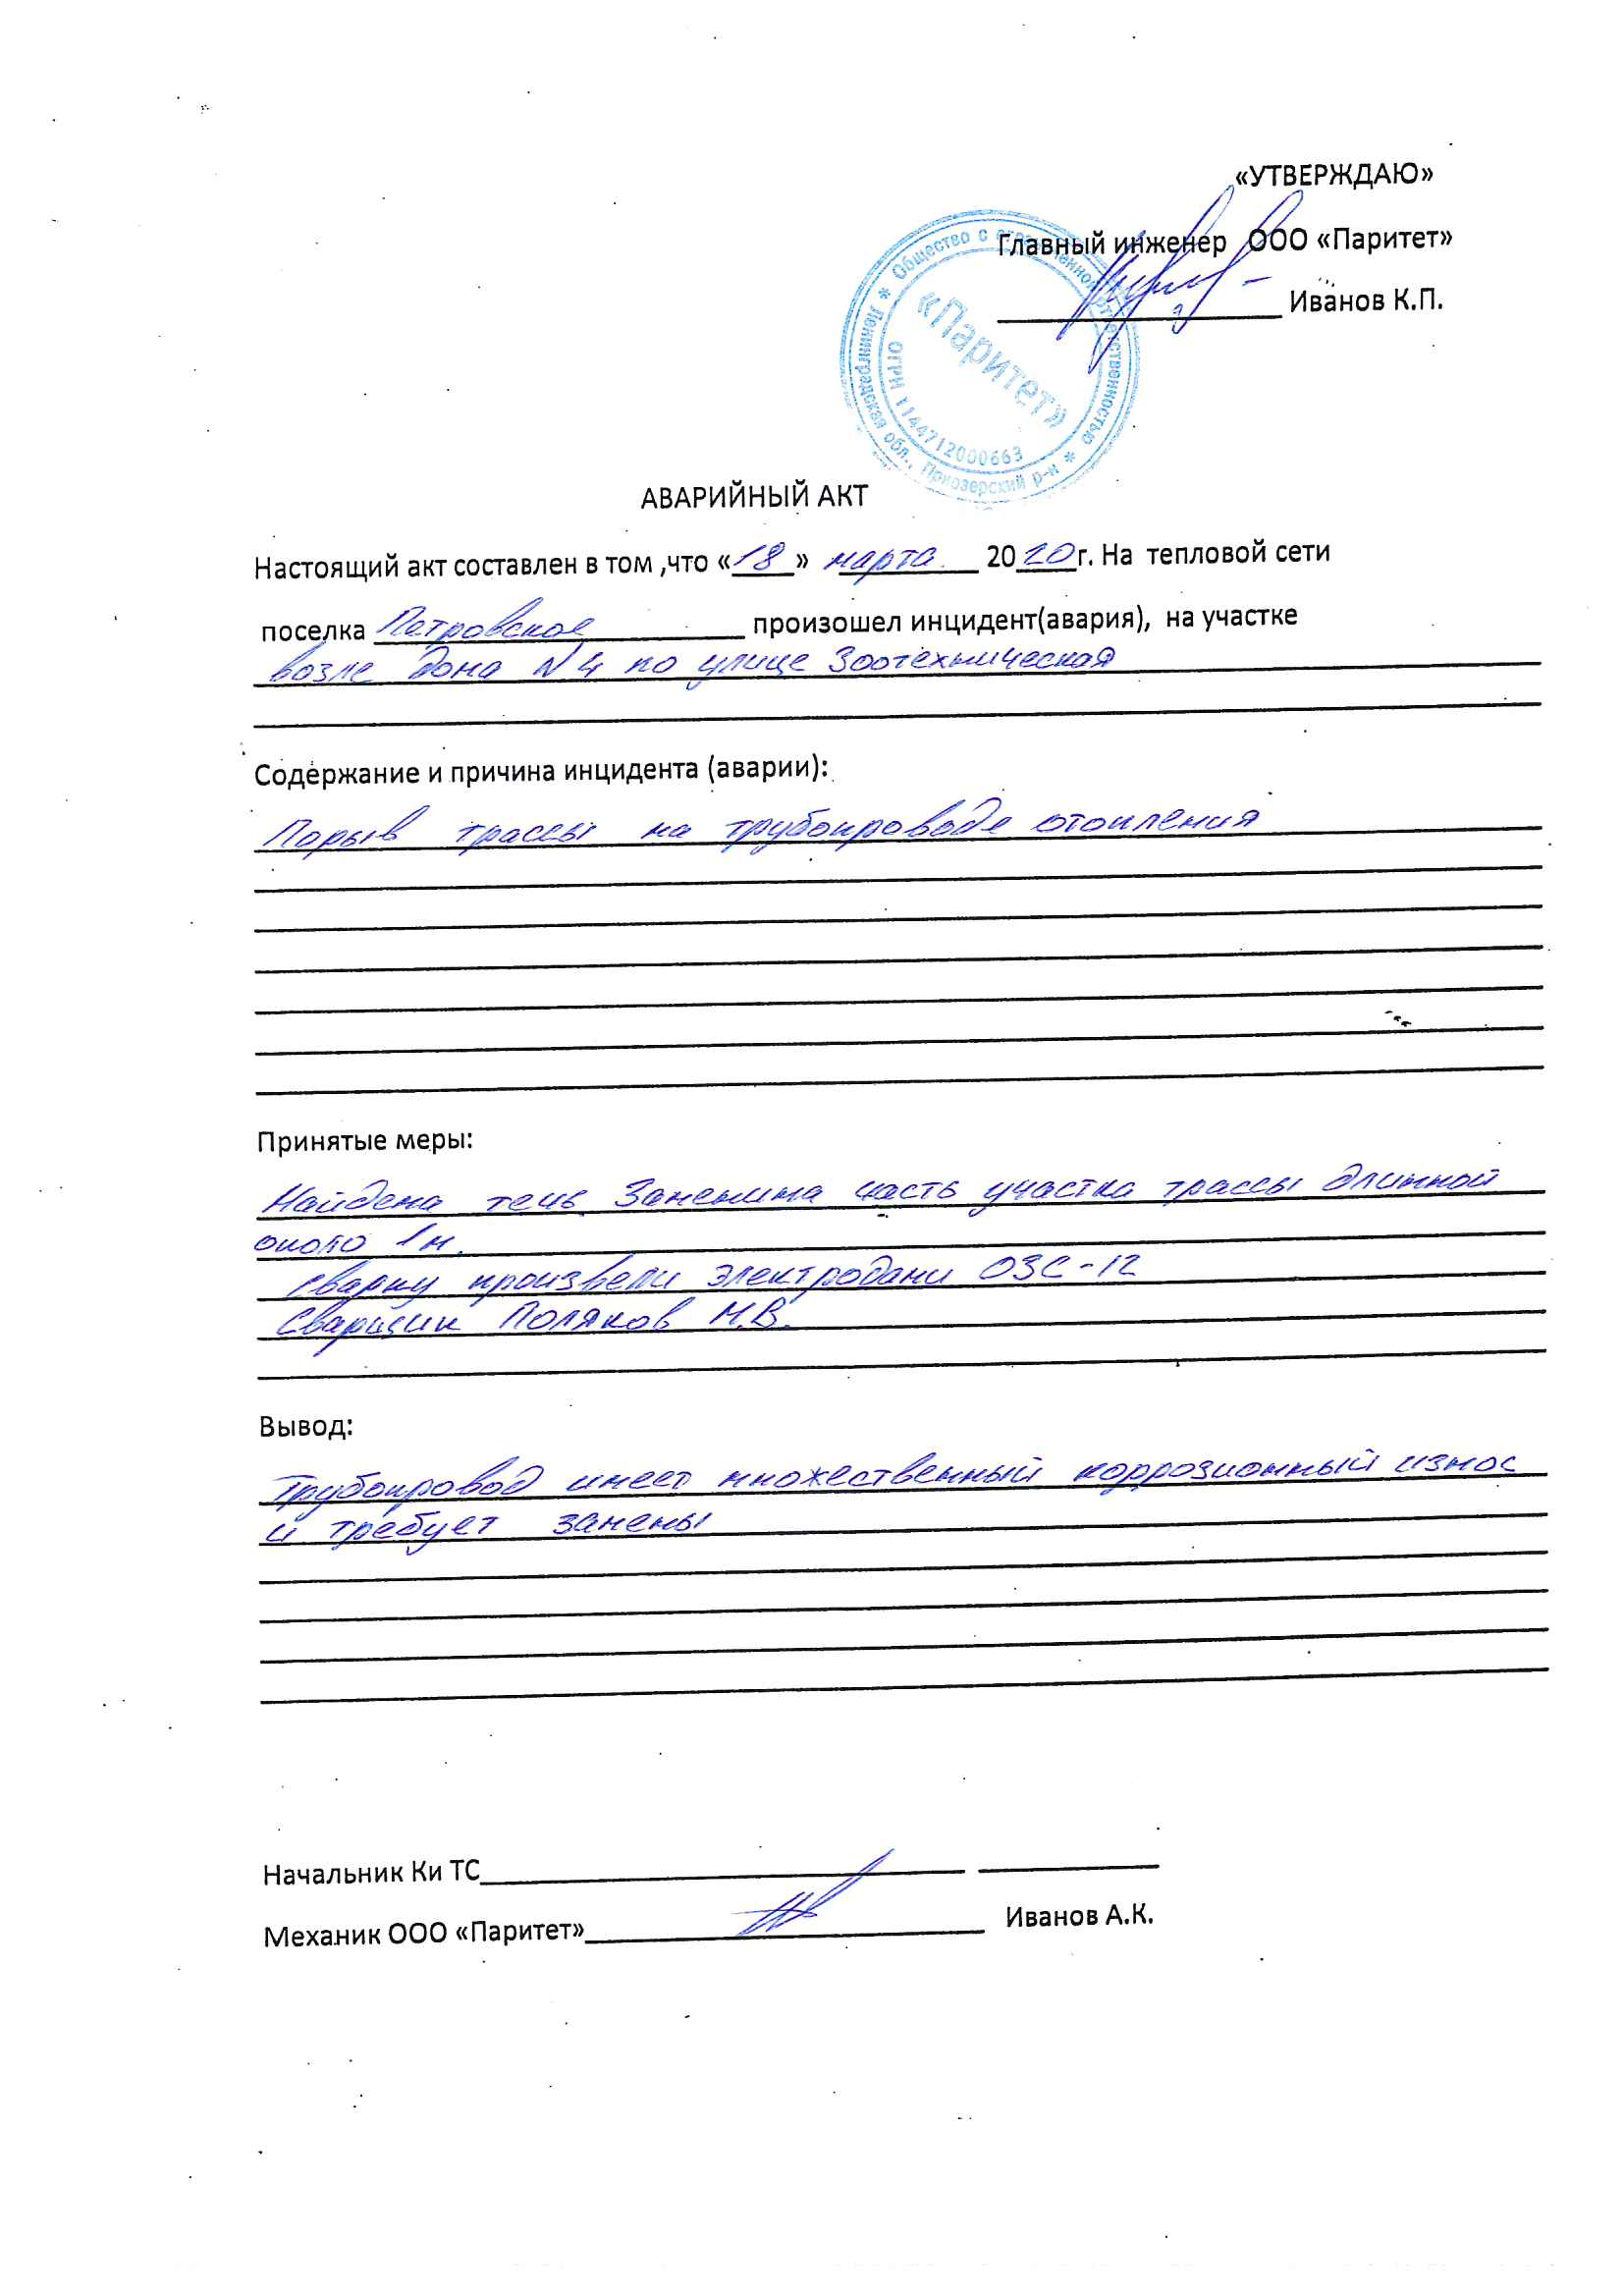 «УТВЕРЖДАЮ»
Главный инженер ООО «Паритет»
Иванов К.П.
* Общество с ограниченной ответственностью *
Ленинградская обл., Приозерский р-н
ОГРН 1144712000663
«Паритет»
АВАРИЙНЫЙ АКТ
Настоящий акт составлен в том ,что «18» марта 2020г. На тепловой сети
поселка Петровское произошел инцидент(авария), на участке
возле дома N4 по улице Зоотехническая
Содержание и причина инцидента (аварии):
Порыв трассы на трубопроводе отопления
Принятые меры:
Найдена течь. Заменина часть участка трассы длинной
около 1м.
Сварку произвели электродами ОЗС-12
Сварщик Поляков М.В.
Вывод:
Трубопровод имеет множественный коррозионный износ
и требует замены
Начальник Ки ТС
Механик ООО «Паритет» Иванов А.К.